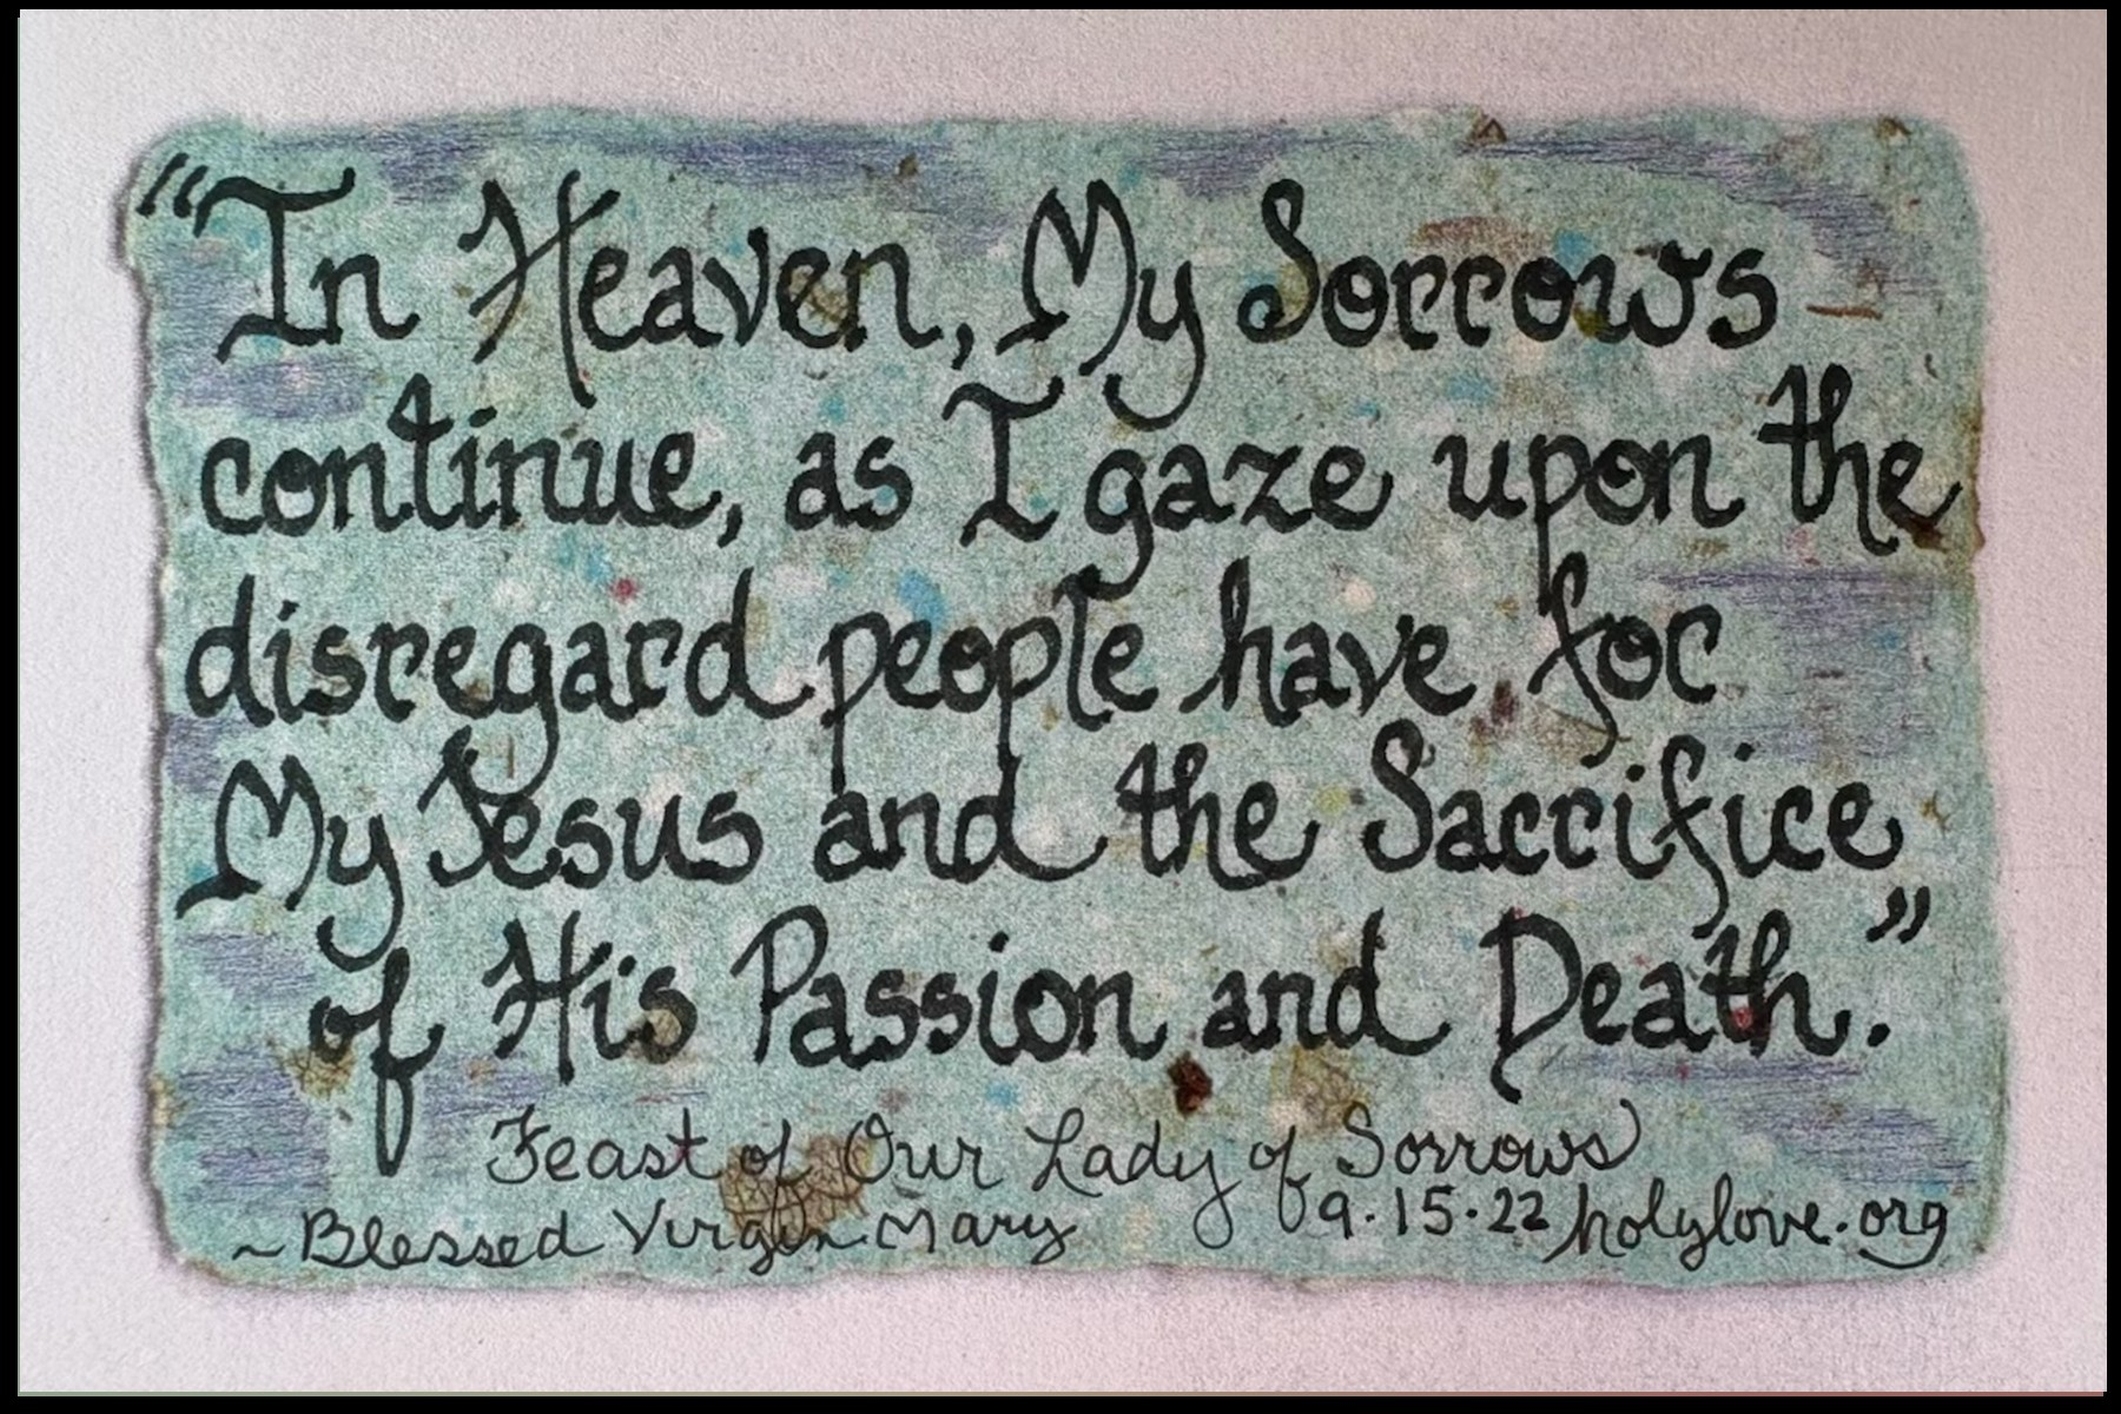 “In Heaven, My Sorrows
continue, as I gaze upon the
disregard people have for
My Jesus and the Sacrifice
of His Passion and Death.”
Feast of Our Lady of Sorrows
~Blessed Virgin Mary 9.15.22 holylove.org